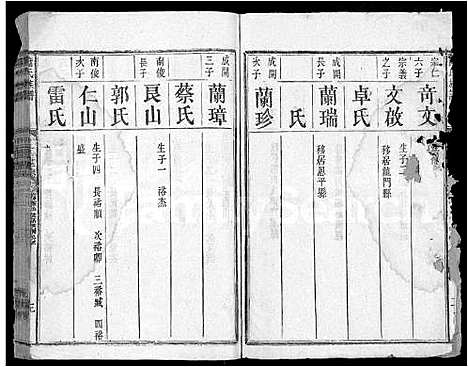 宗仁
六子
奇文
生子二
宗義
之子
文啟
移居龍門縣
卓氏
成開
長子
蘭瑞
移居恩平縣
氏
成開
次子
蘭珍
成開
三子
蘭璋
蔡氏
南俊
長子
艮山
生子一 裕杰
郭氏
南俊
次子
仁山
生子四 長裕順 次裕卿 三裕臧 四裕
盛
雷氏